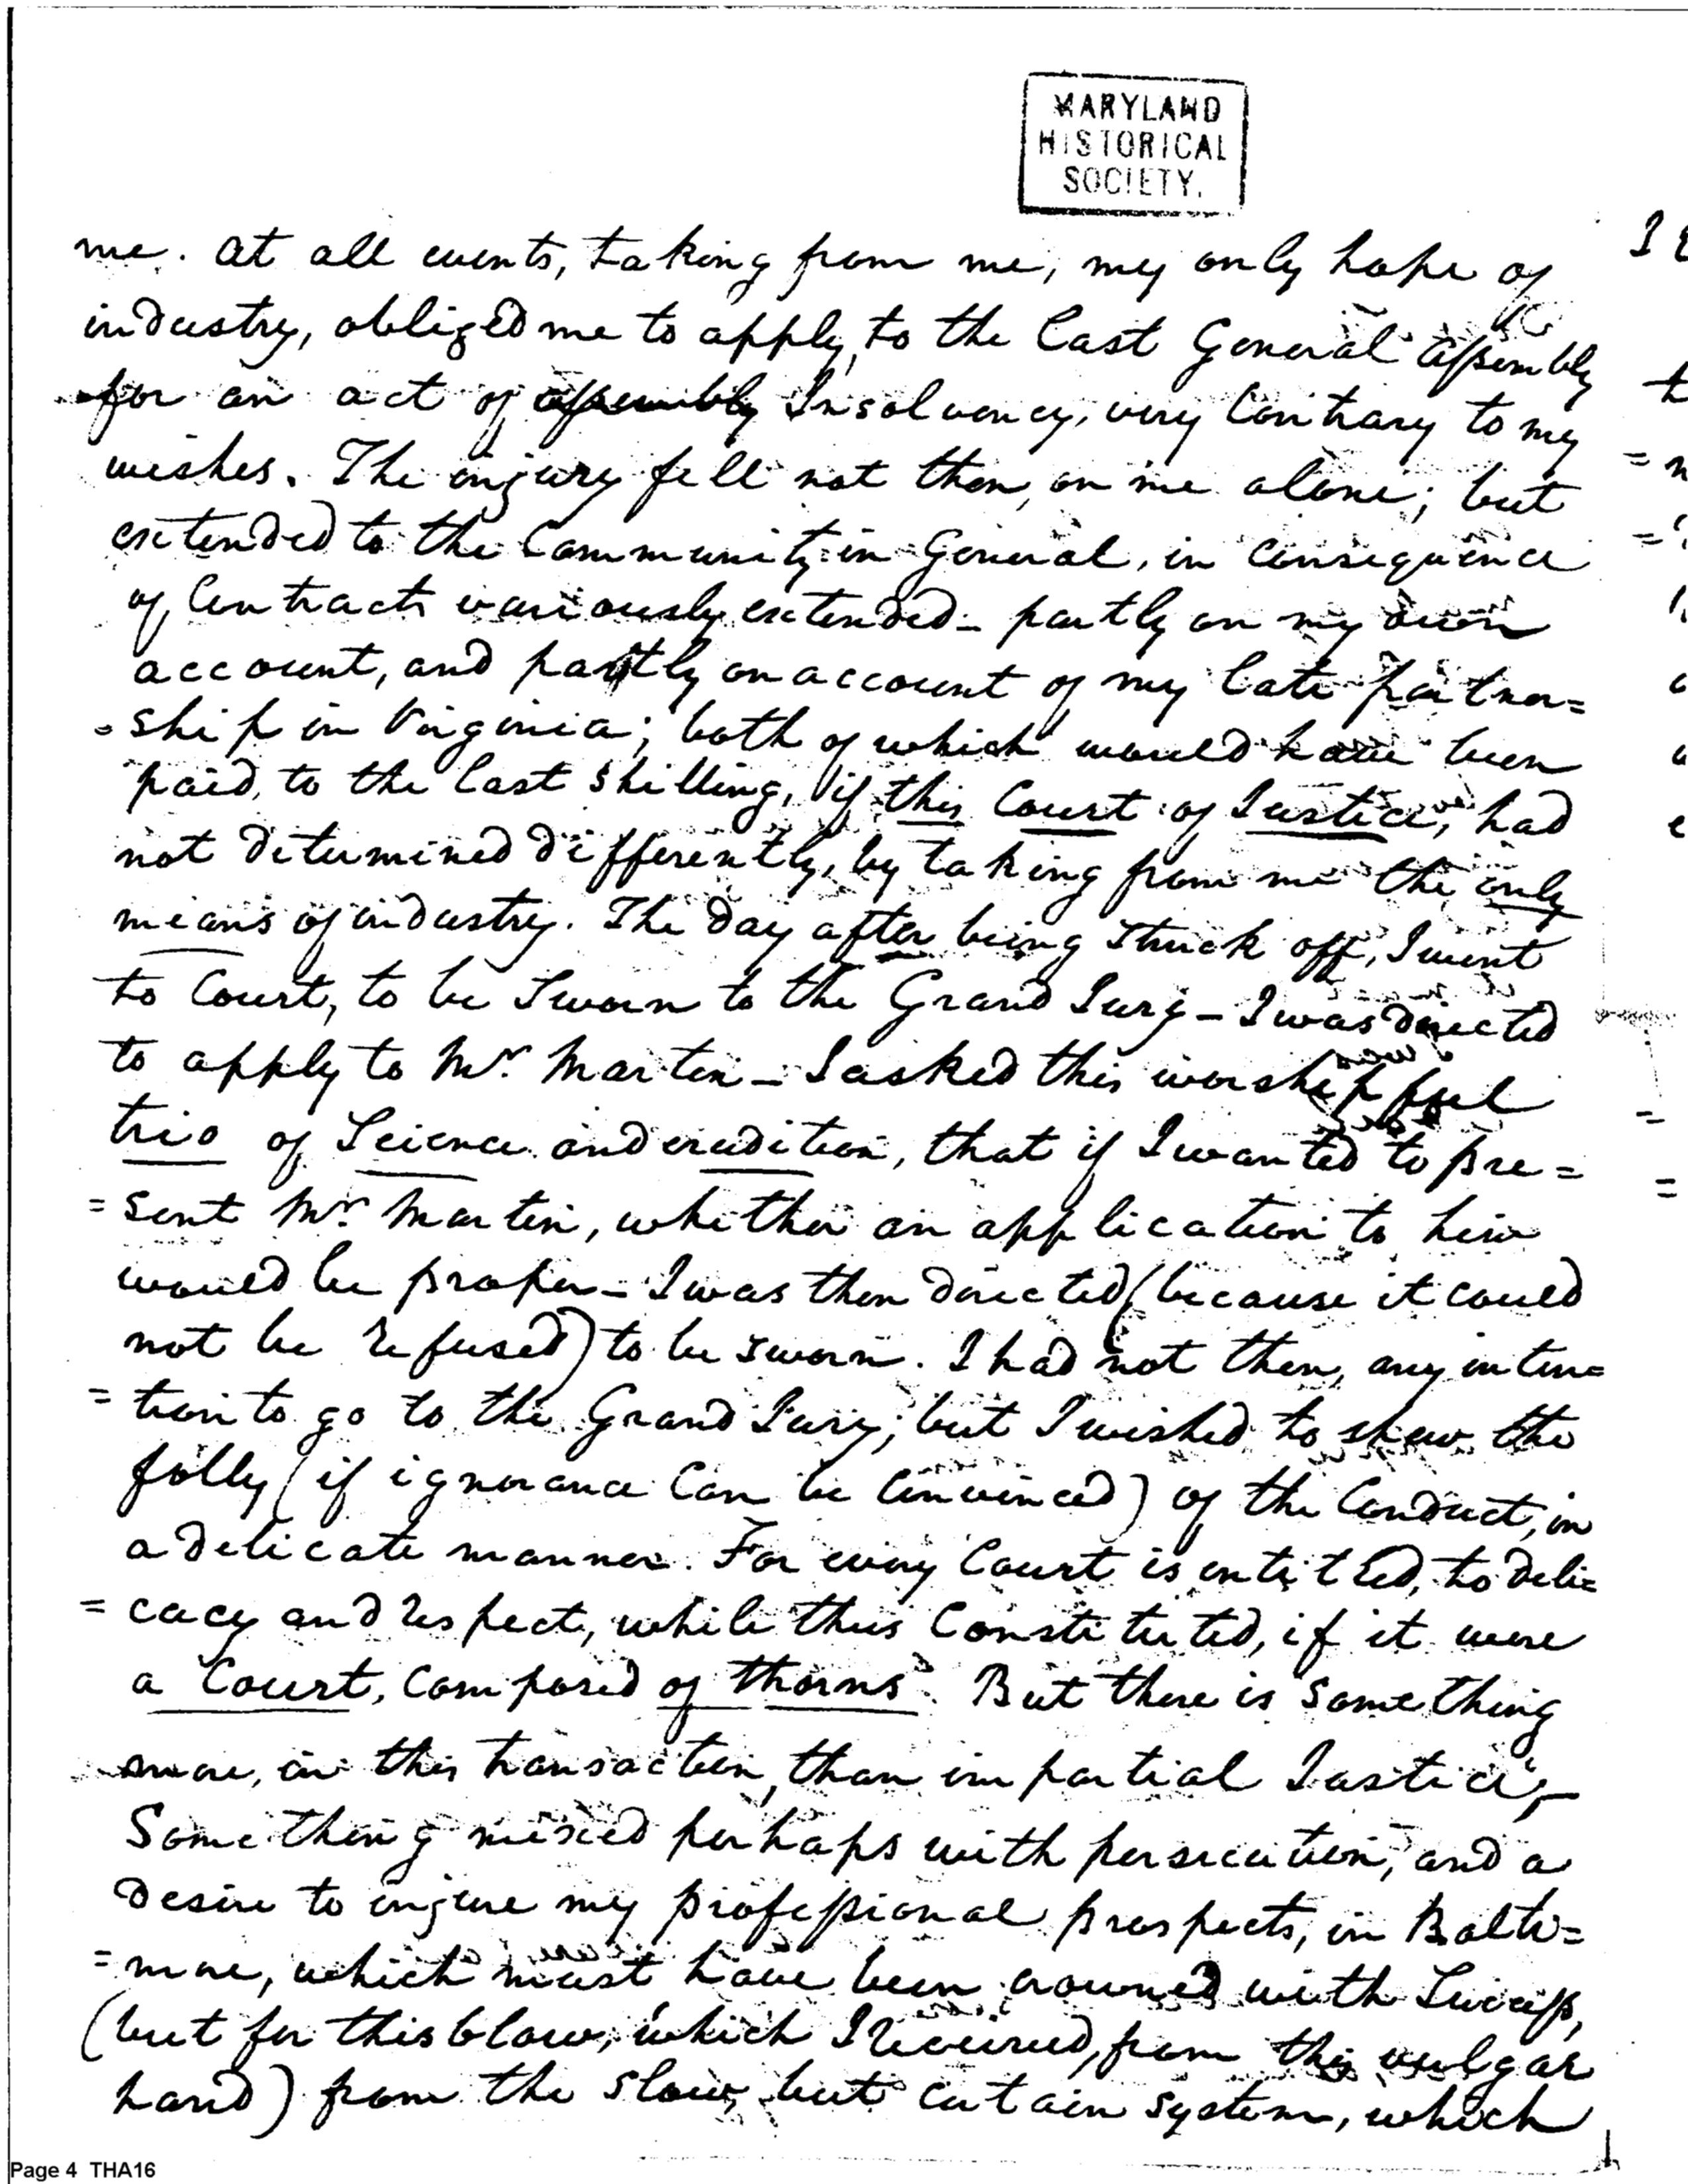 MARYLAND
HISTORICAL
SOCIETY.
me. At all events, taking from me, my only hope of
industry, obliged me to apply, to the last General Assembly
for an act of assembly Insolvency, very Contrary to my
wishes. The injury fell not then, on me alone; but
extended to the Community in General, in consequence
of Contracts variously extended - partly on my own
account, and partly on account of my late partner=
=ship in Virginia; both of which would have been
paid, to the last shilling, if this Court of Justice, had
not determined differently, by taking from me the only
means of industry. The day after being struck off, I went
to Court, to be sworn to the Grand Jury - I was directed
to apply to Mr. Martin - I asked this worshipful
trio of Science and erudition, that if I wanted to pre=
=sent Mr. Martin, whether an application to him
would be proper - I was then directed (because it could
not be refused) to be sworn. I had not then, any inten=
=tion to go to the Grand Jury; but I wished to shew the
folly (if ignorance Can be Convinced) of the Conduct, in
a delicate manner. For every Court is entitled, to deli=
=cacy and respect, while thus Constituted, if it were
a Court, Composed of thorns. But there is something
more, in this transaction, than impartial Justice,-
Something mixed perhaps with persecution, and a
desire to injure my professional prospects, in Balti=
=more, which must have been crowned with Success,
(but for this blow, which I received, from this vulgar
hand) from the slow, but certain system, which
Page 4 THA16